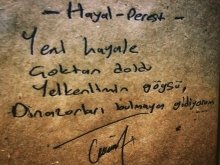 - Hayal-Perest -
Yeni hayale
Çoktan doldu
Yelkenlimin göğsü,
Dinazorları bulmaya gidiyorum